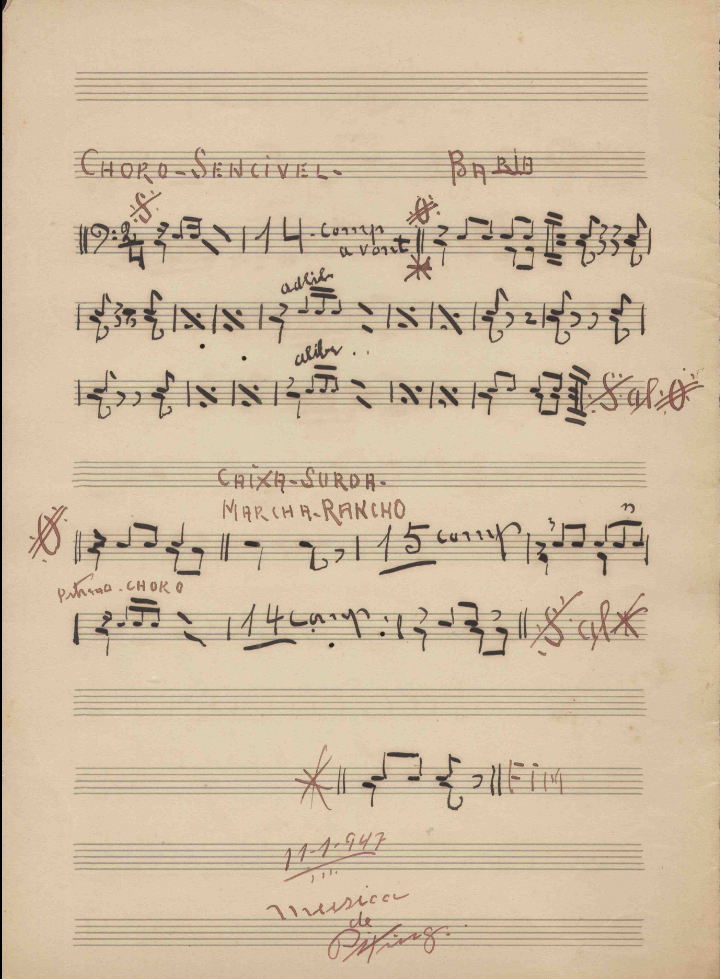 CHORO-SENCIVEL-
14-comp
a vont
adlib
alibi
al
CAIXA-SURDA-
MARCHA-RANCHO
15 comp 3
CHORO
14 comp
al
FIM
11-1-947
musica
de